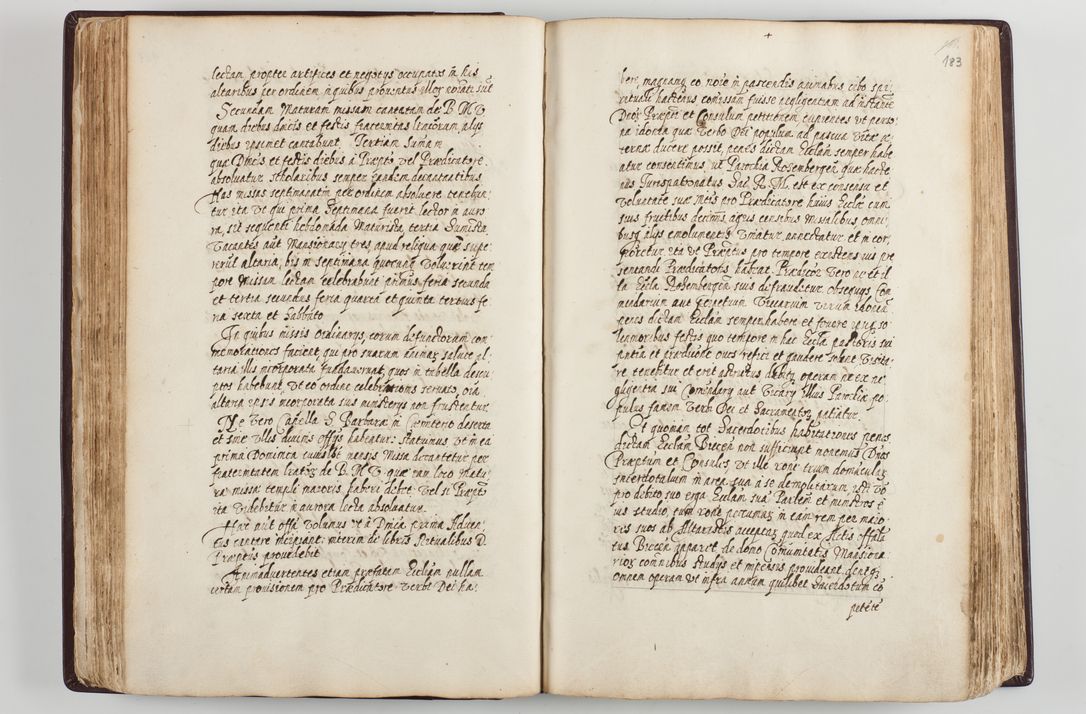 lectam propter artifices et negotys occupatos in his
altaribus per ordinem in quibus prouentus illor notati sut
Secundam Maturam missam cantatam de B M V
quam diebus dnicis et festis fraternitas literatorum alys
diebus ipsimet cantabunt Tertiam Sumam
quæ Dnicis et festis diebus à Præpto vel Prædicatore
absoluatur scholaribus semper eandem decantantibus
Has missas septimanatim per ordinem absoluere tenebun
tur ita ut qui prima septimana fuerit lector in auro
ra, sit sequenti hebdomada Maturista, tertia Sumista
Vacantes aut Mansionary tres apud reliqua quæ supe
rerut altaria, bis in septimana quocunq voluerint tem
pore missam lectam celebrabunt primus feria secunda
et tertia secundus feria quarta et quinta tertius fe
ria sexta et sabbato
In quibus missis ordinarys, eorum defunctorum com
memorationes facient, qui pro suarum animar salute al
taria illis incorporata fundauerunt, quos in tabella descri
ptos habebunt, Vt eo ordine celebrationis seruato, oia
altaria ipsis incorporata suis ministerys non frustentur
Ne Vero Capella S Barbaræ in Cæmiterio deserta
et sine vllis diuinis offys habeatur: statuimus vt in ea
prima Dominica cuiuslibet mensis Missa decantetur per
fraternitatem de B. M V. quæ tan loco matu
ra missa templi maioris haberi debet vel si Præpto
ita videbitur in aurora lecta absoluatur
Hæc aut offi volumus vt à Dnica prima Aduen
tus cantere incipiant: interim de libris Ritualibus D
Præptus prouidebit
Animaduertentes etiam præfatam Ecclam nullam
certam prouisionem pro Prædicatore verbi Dei ha:
183
bere, magnamq eo noie in pascendis animabus cibo spi
rituali hactenus comissam fuisse negligentiam ad instante
Dnor Præpti et Consulum petitionem cupientes vt perso
na idonea quæ Verbo Dei populum ad pascua vitæ æ
ternæ ducere possit, penes dictam Ecclam semper habe
atur consentimus ut Parochia Rosembergen quæ hacte
nus Jurispatronatus Sac. R. M. est ex consensu et
voluntate suæ Mtis pro Prædicatore huius Ecclæ cum
suis fructibus decimis agris censibus missalibus omni
busq alys emolumentis vniatur, annectatur, et in cor
poretur ita ut Præptus pro tempore existens ius pre
sentandi Prædicatoris habeat.
la Eccla Rosembergen suis defraudetur obsequys Com
mendarium aut perpetuum Vicarium virum idoneu
penes dictam Ecclam semper habere et fouere
lennioribus festis quo tempore in hac Eccla pastoris sui
re tenebitur et erit astrictus dabitq operam ne ex ne
gligentia sui Comendary aut Vicary illius Parochiæ po
pulus famem Verbi Dei et Sacramentor patiatur
Et quoniam tot Sacerdotibus habitationes penes
dictam Ecclam Biecen non sufficiunt monemus Dnos
Præptum et Consules vt ille rone trium domcular
sacerdotalium in area sua a se demolitarum,
pro debito suo erga Ecclam sua Parlem et ministros e
ius studio, cum rone pecuniar in eam rem per maio
res suos ab Altaristis acceptar quod ex Actis offici
tus Biecen apparet de domo Comunitatis Mansiona
rior omnibus studys et impensis prouideant dentq
omnem operam vt infra annum quilibet Sacerdotum co
petete